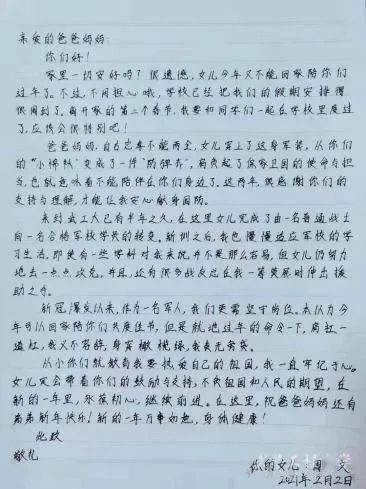 亲爱的爸爸妈妈:
你们好!
家里一切安好吗?很遗憾,女儿今年又不能回家陪你们
过年了。不过,不用担心哦,学校已经把我们的假期安排得
很周到了。离开家的第二个春节,我要和同学们一起在学校里度过
了,应该会很特别吧!
爸爸妈妈,自古忠孝不能两全,女儿穿上了这身军装,从你们
的“小棉袄”变成了一件“防弹衣”,肩负起了保家卫国的使命与担
当,也就意味着不能陪伴在你们身边了。这两年,很感谢你们的
支持与理解,才能让我安心献身国防。
来到武工大已有半年之久,在这里女儿完成了由一名普通战士
向一名合格军校学员的转变。新训之后,我也慢慢适应军校的学
习生活,即使有一些学科对我来说并不是那么容易,但女儿仍努力
地去一点点攻克,并且,还有很多战友总在我一筹莫展时伸出援
助之手。
新冠爆发以来,作为一名军人,我们更需坚守岗位。本以为今
年可以回家陪你们共度佳节,但是就地过年的命令一下,肩扛一
道杠,我义不容辞,身穿橄榄绿,我责无旁贷。
从小你们就教育我要热爱自己的祖国,我一直牢记于心。
女儿定会带着你们的鼓励与支持,不负祖国和人民的期望,在
新的一年里,永葆初心,继续前进。在这里,祝爸爸妈妈还有
弟弟新年快乐!新的一年万事如意,身体健康!
此致
敬礼
您的女儿 周
2021年2月2日